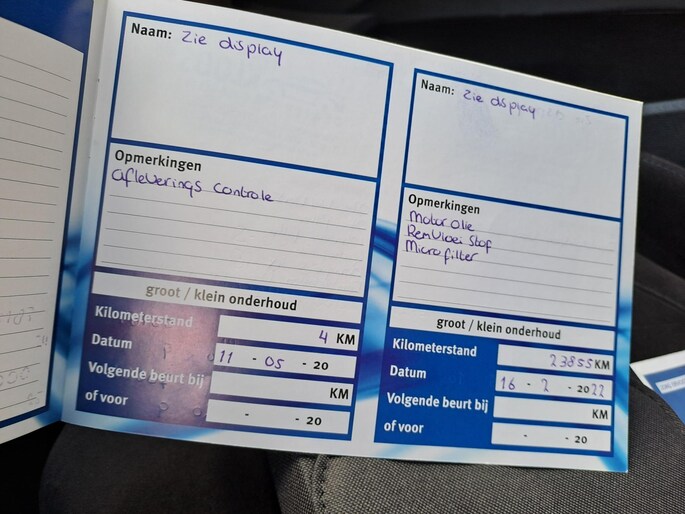 Naam: Zie display
Opmerkingen
afleverings controle
groot / klein onderhoud
Kilometerstand 4 KM
Datum 11 - 05 - 20
Volgende beurt bij KM
of voor - - 20
Naam: Zie display
Opmerkingen
Motor olie
Remvloei stof
Microfilter
groot / klein onderhoud
Kilometerstand 23855 KM
Datum 16 - 2 - 2022
Volgende beurt bij KM
of voor - - 20